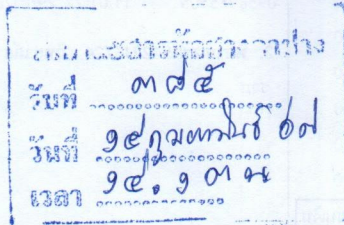 วันที่ ๓๘๕
วันที่ ๑๔ กุมภาพันธ์ ๖๗
เวลา ๑๔.๑๓ น